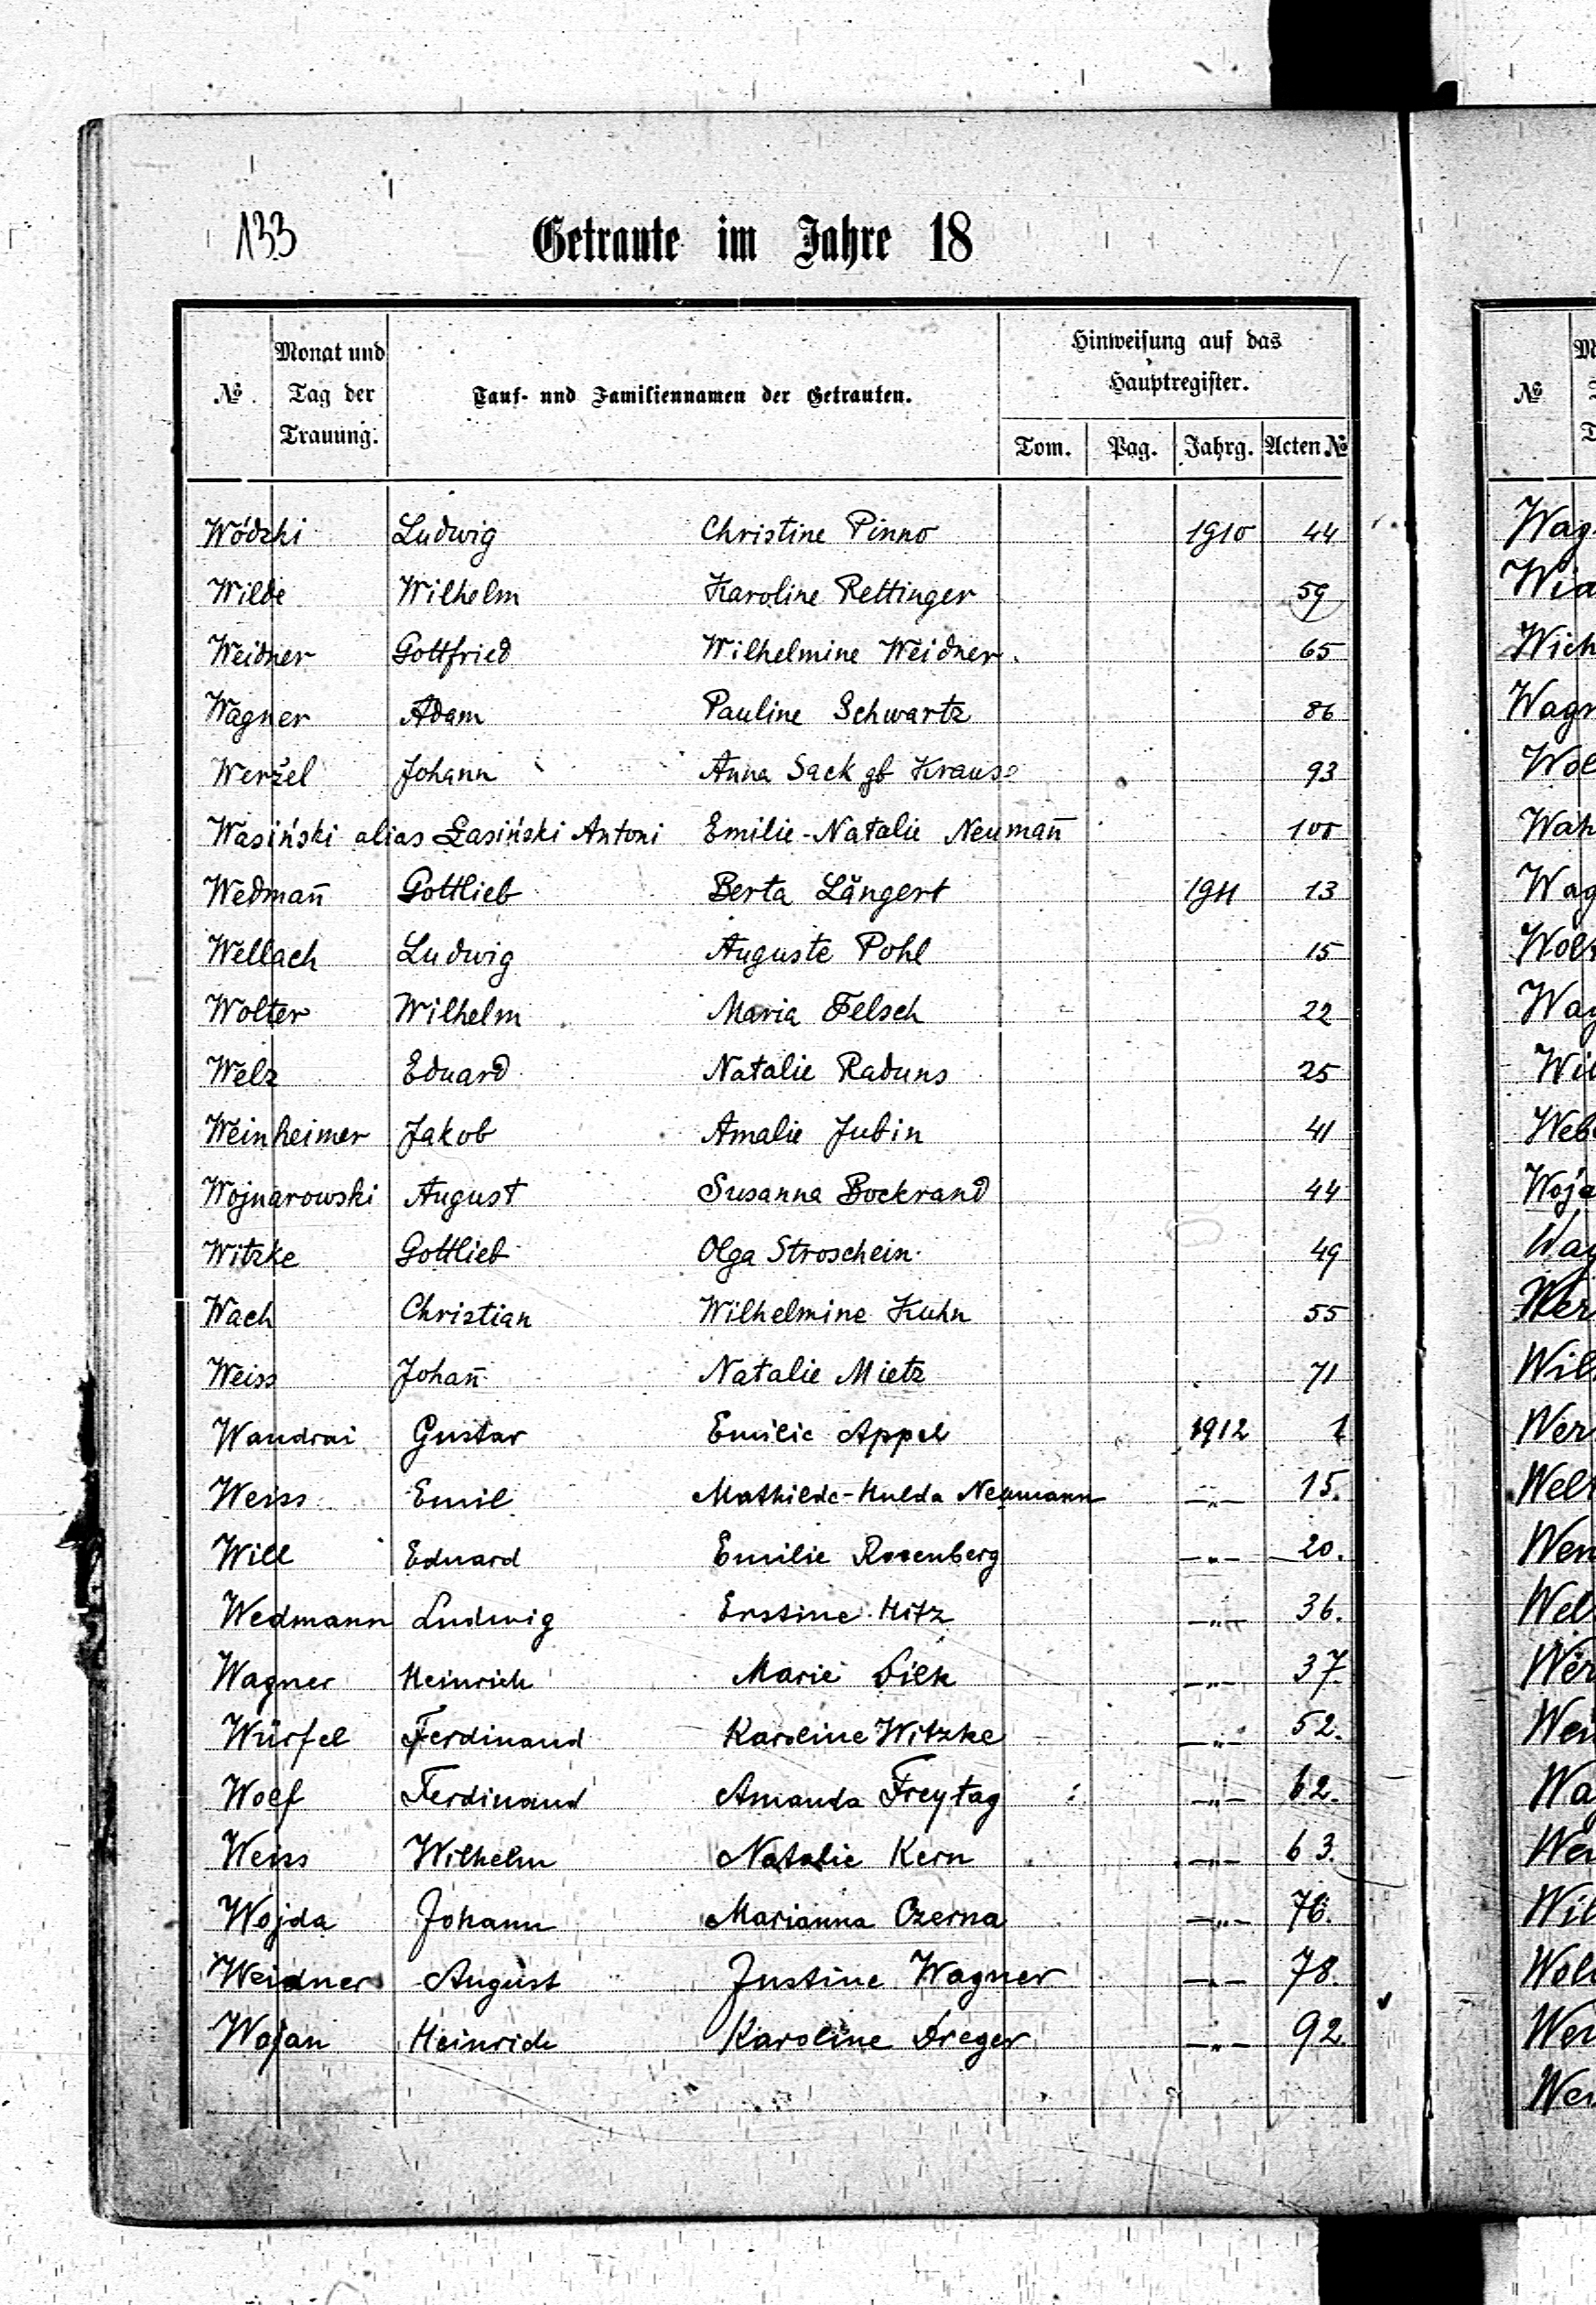 133 Getraute im Jahre 18
№ Monat und Tag der Trauung. Tauf- und Familiennamen der Getrauten. Hinweisung auf das Hauptregister.
Tom. Pag. Jahrg. Acten №
Wódzki Ludwig Christine Pinno 1910 44
Wilde Wilhelm Karoline Rettinger 59
Weidner Gottfried Wilhelmine Weidner. 65
Wagner Adam Pauline Schwartz 86
Werżel Johann Anna Sack gb Krause 93
Wasiński alias Łasiński Antoni Emilie-Natalie Neuman̄ 100
Wedman̄ Gottlieb Berta Längert 1911 13
Wellach Ludwig Auguste Pohl 15
Wolter Wilhelm Maria Felsch 22
Welz Eduard Natalie Raduns 25
Weinheimer Jakob Amalie Jubin 41
Wojnarowski August Susanna Bockrand 44
Witzke Gottlieb Olga Stroschein 49
Wach Christian Wilhelmine Kuhn 55
Weiss Johan̄ Natalie Mietz 71
Wandrai Gustav Emilie Appel 1912 1
Weiss Emil Mathilde-Hulda Neumann —„— 15.
Will Eduard Emilie Rosenberg —„— 20.
Wedmann Ludwig Erstine Hitz —„— 36.
Wagner Heinrich Marie —„— 37.
Würfel Ferdinand Karoline Witzke —„— 52.
Wolf Ferdinand Amanda Freytag —„— 62.
Weiss Wilhelm Natalie Kern —„— 63.
Wojda Johann Marianna Czerna —„— 76.
Weidner August Justine Wagner —„— 78.
Wojan Heinrich Karoline Dreger —„— 92.